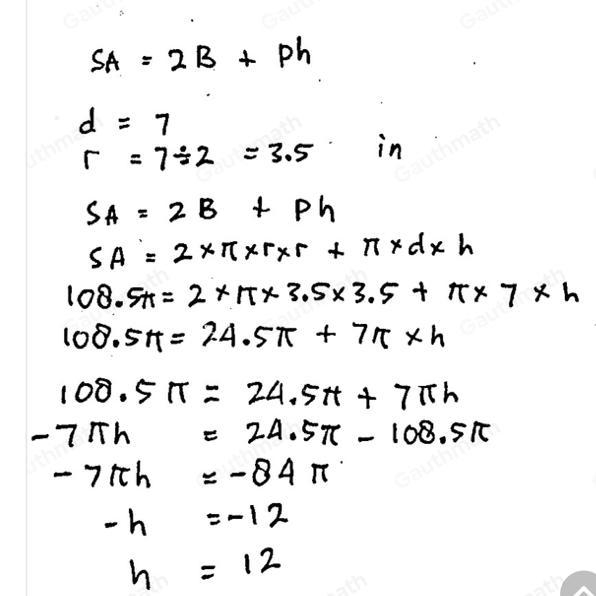 SA = 2B + Ph
d = 7
r = 7÷2 = 3.5 in
SA = 2B + Ph
SA = 2×π×r×r + π×d×h
108.5π = 2×π×3.5×3.5 + π×7×h
108.5π = 24.5π + 7π×h
108.5π = 24.5π + 7πh
-7πh = 24.5π - 108.5π
-7πh = -84π
-h = -12
h = 12